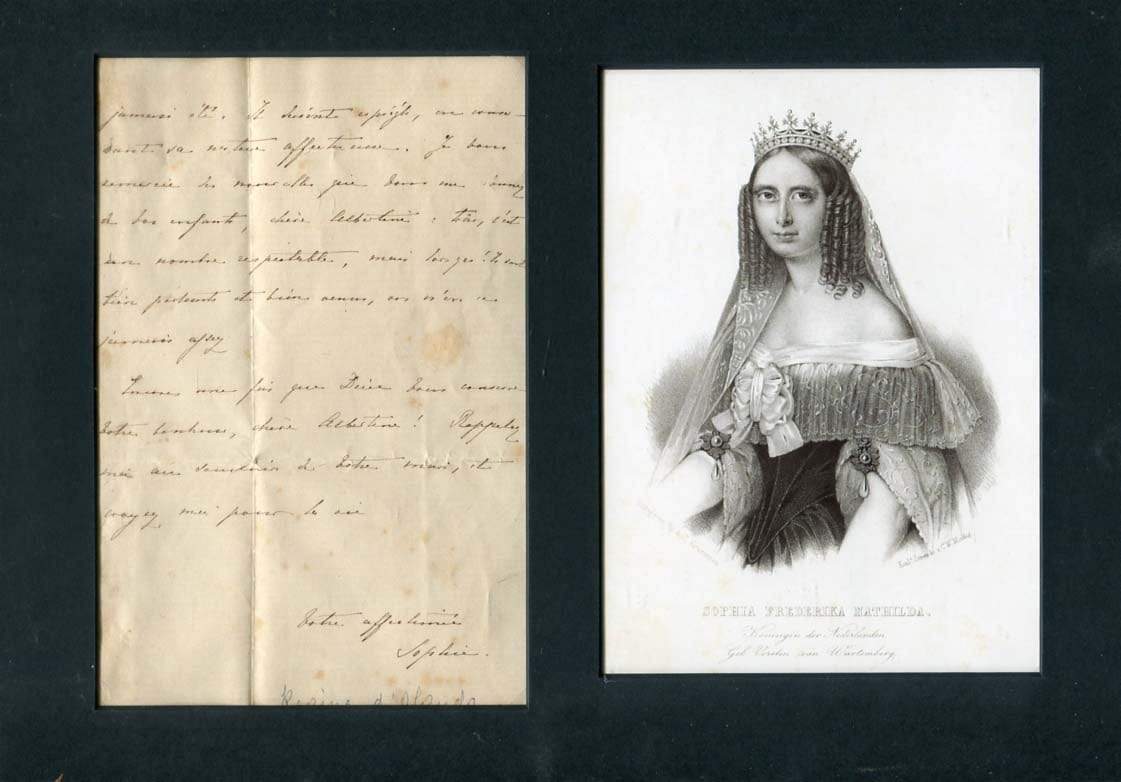 jamais été. Il
sa nature affectueuse. Je vous
remercie des nouvelles que vous me donnez
de vos enfants, chère Albertine : c'est
un nombre respectable, mais
bien portants et bien venus, on n'en a
jamais assez
Encore une fois que Dieu vous conserve
votre bonheur, chère Albertine ! Rappelez
moi au souvenir de votre mari, et
croyez moi pour la vie
Votre affectionnée
Sophie.
Reine d'Hollande
SOPHIA FREDERIKA MATHILDA.
Koningin der Nederlanden
Geb. Vorstin van Wurtemberg.